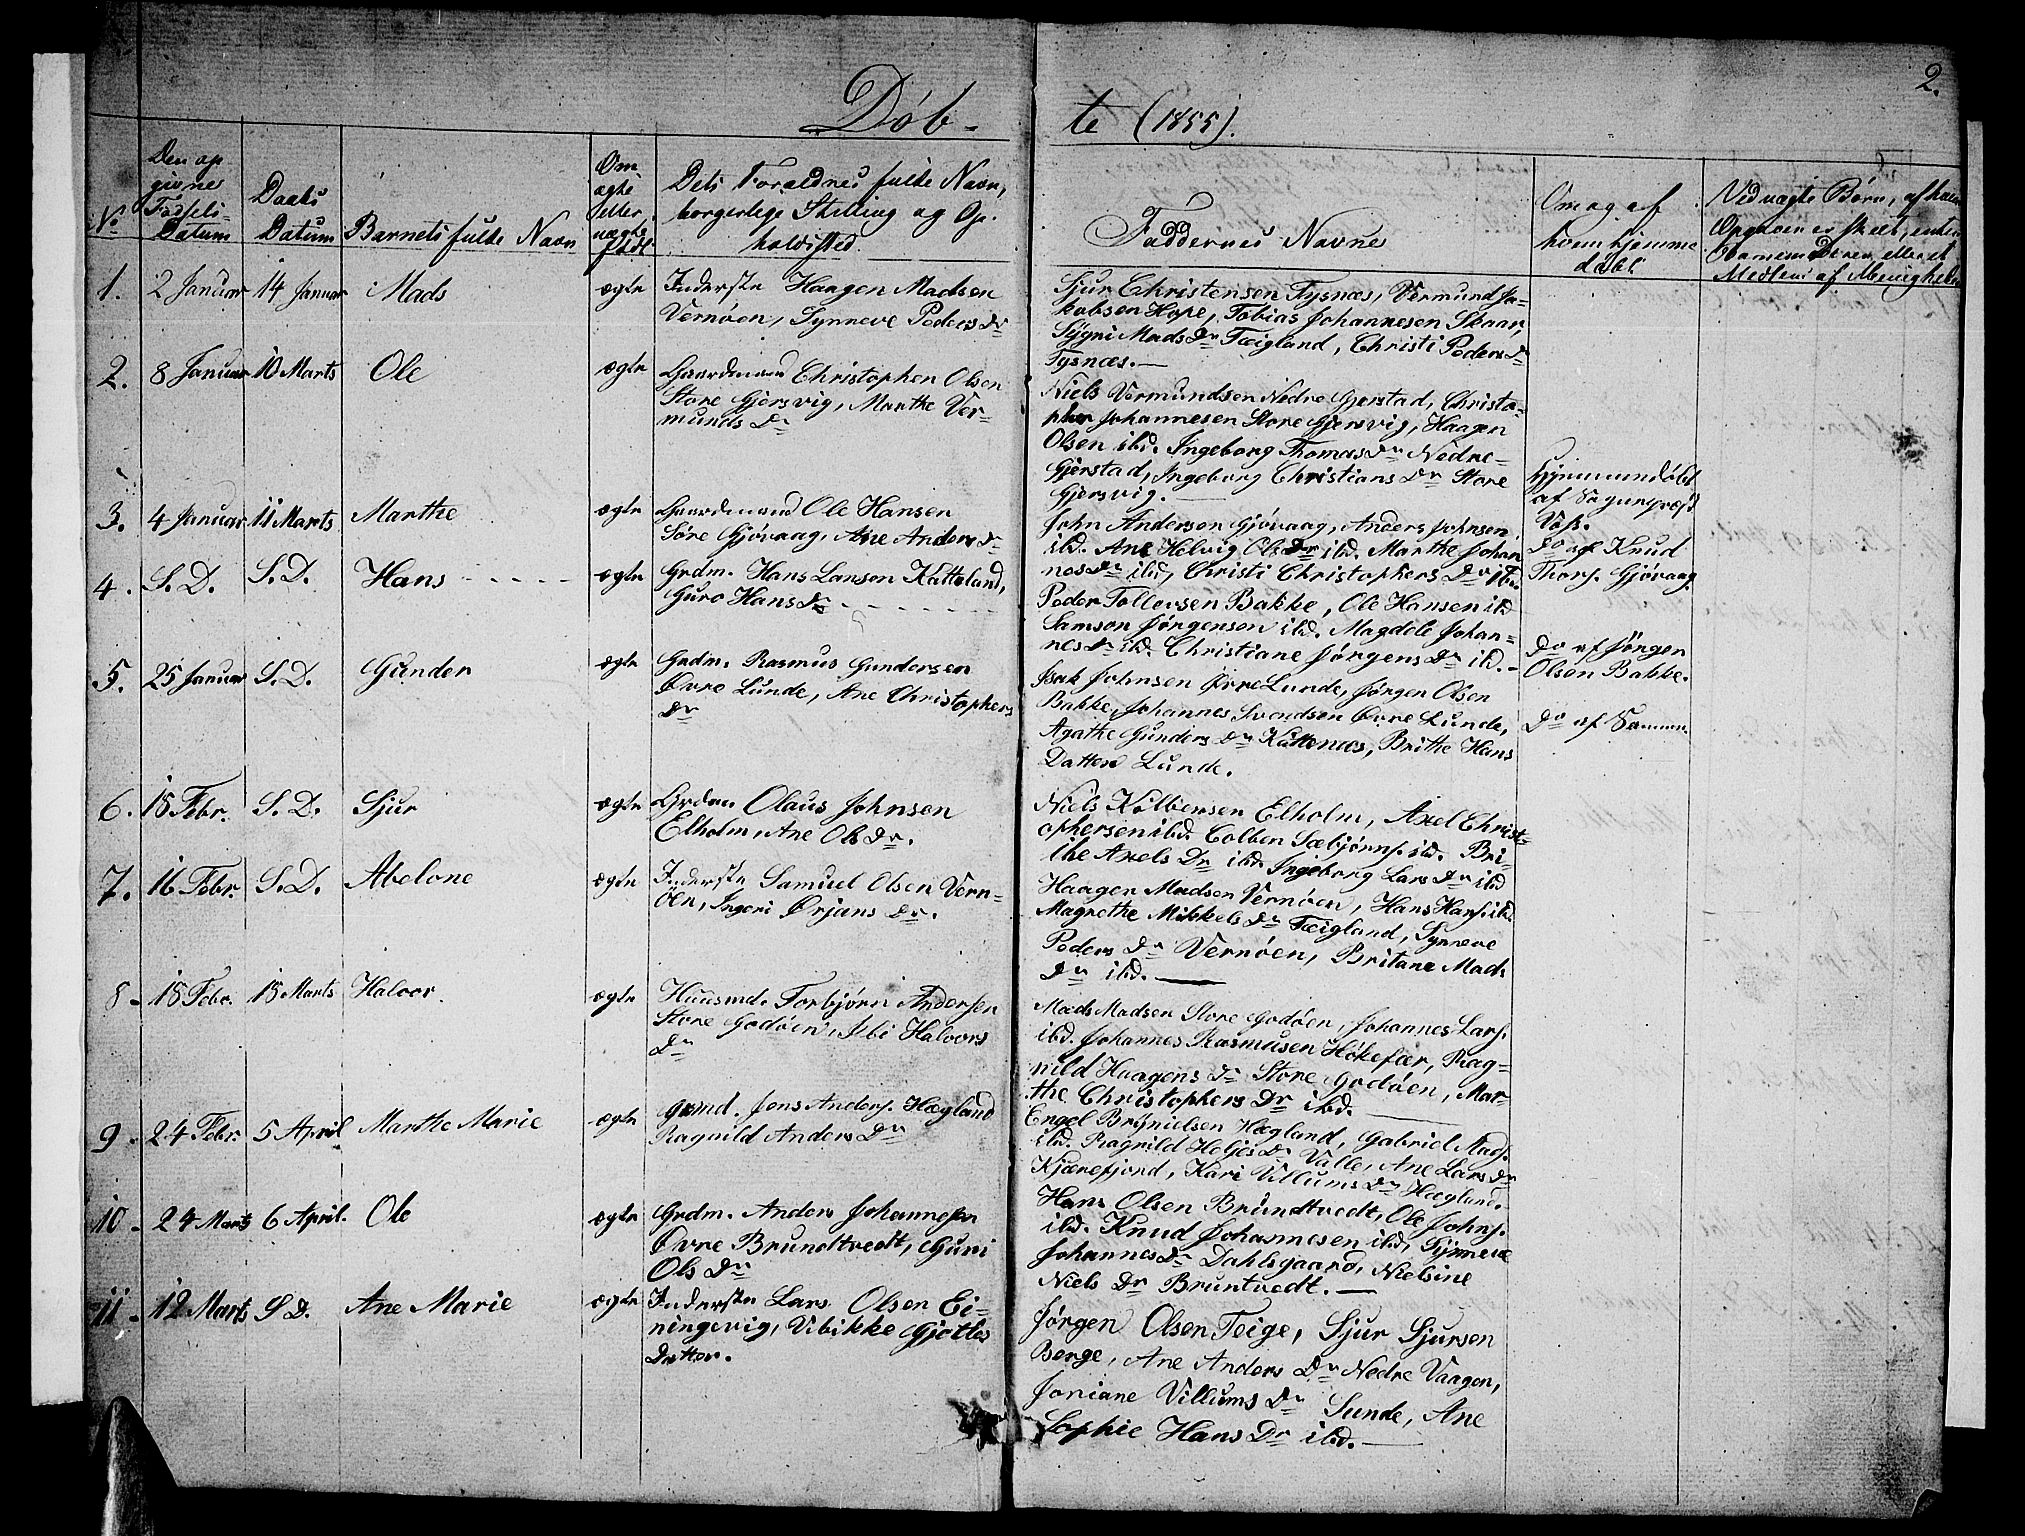 2.
Døb-
te (1855).
No
Den op
givne
Fødsels-
Datum
Daabs
Datum
Barnets fulde Navn
Om
ægte
eller
uægte
født
Dets Forældres fulde Navn,
borgerlige Stilling og Op-
holdssted.
Faddernes Navne
Om og af
hvem hjemme
døbt
Ved uægte Børn, af hvem
Opgaven er skeet, enten
Medlem af Menigheden
1.
2 Januar
14 Januar
Mads
ægte
Inderste Haagen Madsen
Vernøen, Synneve Peders Dr
Sjur Christensen Tysnæs, Vermund Ja-
kobsen Hope, Tobias Johannesen Skaar,
Sygni Mads Dr Tæigland, Christi Peders Dr
Tysnæs.—
2.
8 Januar
10 Marts
Ole
ægte
Gaardmand Christopher Olsen
Store Gjersvig, Marthe Ver-
munds Dr
Niels Vermundsen Nedre Gjerstad, Christo-
pher Johannesen Store Gjersvig, Haagen
Olsen ibd. Ingeborg Thomas Dr Nedre-
Gjerstad, Ingeborg Christians Dr Store
Gjersvig.—
3.
4 Januar
11 Marts
Marthe
ægte
Gaardmand Ole Hansen
Søre Gjøvaag, Ane Anders Dr
John Andersen Gjøvaag, Anders Johnsen
ibd. Ane Helvig Ols Dr ibd. Marthe Johan-
nes Dr ibd, Christi Christophers Dr ibd.
Hjemmedøbt
af Sogneprest
Voss.
4.
S. D.
S. D.
Hans - - - - -
ægte
Grdm. Hans Larsen Katteland,
Guro Hans Dr - - - - - -
Peder Tollevsen Bakke, Ole Hansen ibd
Samson Jørgensen ibd. Magdele Johan-
nes Dr ibd. Christiane Jørgens Dr ibd.—
Do af Knud
Thors. Gjøvaag.
5.
25 Januar
S. D.
Gunder
ægte
Grdm. Rasmus Gundersen
Øvre Lunde, Ane Christophers
Dr
Isak Johnsen Øvre Lunde, Jørgen Olsen
Bakke, Johannes Svendsen Øvre Lunde,
Agathe Gunders Dr Kattenæs, Brithe Hans
Datter Lunde.
Do af Jørgen
Olsen Bakke.
Do af Samme
6.
15 Febr.
S. D.
Sjur
ægte
Grdm Olaus Johnsen
Elholm, Ane Ols Dr.
Niels Kolbensen Elholm, Axel Christ-
ophersen ibd. Colben Sæbjørns. ibd. Bri-
the Axels Dr ibd. Ingeborg Lars Dr ibd
7.
16 Febr.
S. D.
Abelone
ægte
Inderste Samuel Olsen Vern-
øen, Ingeri Ørjans Dr.
Haagen Madsen Vernøen, Hans Hans. ibd.
Magrethe Mikkels Dr Tæigland, Synneve
Peders Dr Vernøen, Britane Mads
Dr ibd.—
8.
18 Febr.
15 Marts
Halvor.
ægte
Huusmd. Torbjørn Andersen
Store Godøen, Sibi Halvors
Dr
Mads Madsen Store Godøen, Johannes Lars.
ibd. Johannes Rasmusen Høkefær, Rag-
nild Haagens Dr Store Godøen, Mar-
the Christophers Dr ibd.—
9.
24 Febr.
5 April
Marthe Marie
ægte
Grmd. Jens Anders. Hægland
Ragnild Anders Dr
Engel Brynielsen Hægland, Gabriel Mads.
ibd. Ragnild Heljes Dr Valle, Ane Lars Dr
Kjærefjord, Kari Villums Dr Hægland.
10.
24 Marts
6 April.
Ole
ægte
Grdm. Anders Johannesen
Øvre Brundtvedt, Guni
Ols Dr
Hans Olsen Brundtvedt, Ole Johns.
ibd. Knud Johannesen ibd, Synneve
Johannes Dr Dahlsgaard, Nielsine
Niels Dr Bruntvedt.—
11.
12 Marts
S D.
Ane Marie
ægte
Inderste Lars Olsen Ei-
ningevig, Vibikke Gjotles
Datter.
Jørgen Olsen Teige, Sjur Sjursen
Berge, Ane Anders Dr Nedre Vaagen,
Joniane Villums Dr Sunde, Ane
Sophie Hans Dr ibd.—